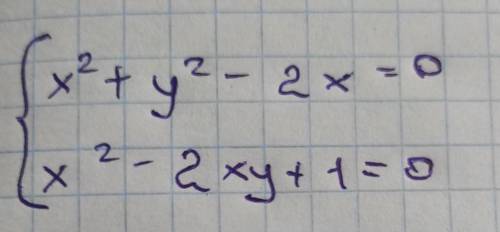 x² + y² - 2x = 0
x² - 2xy + 1 = 0